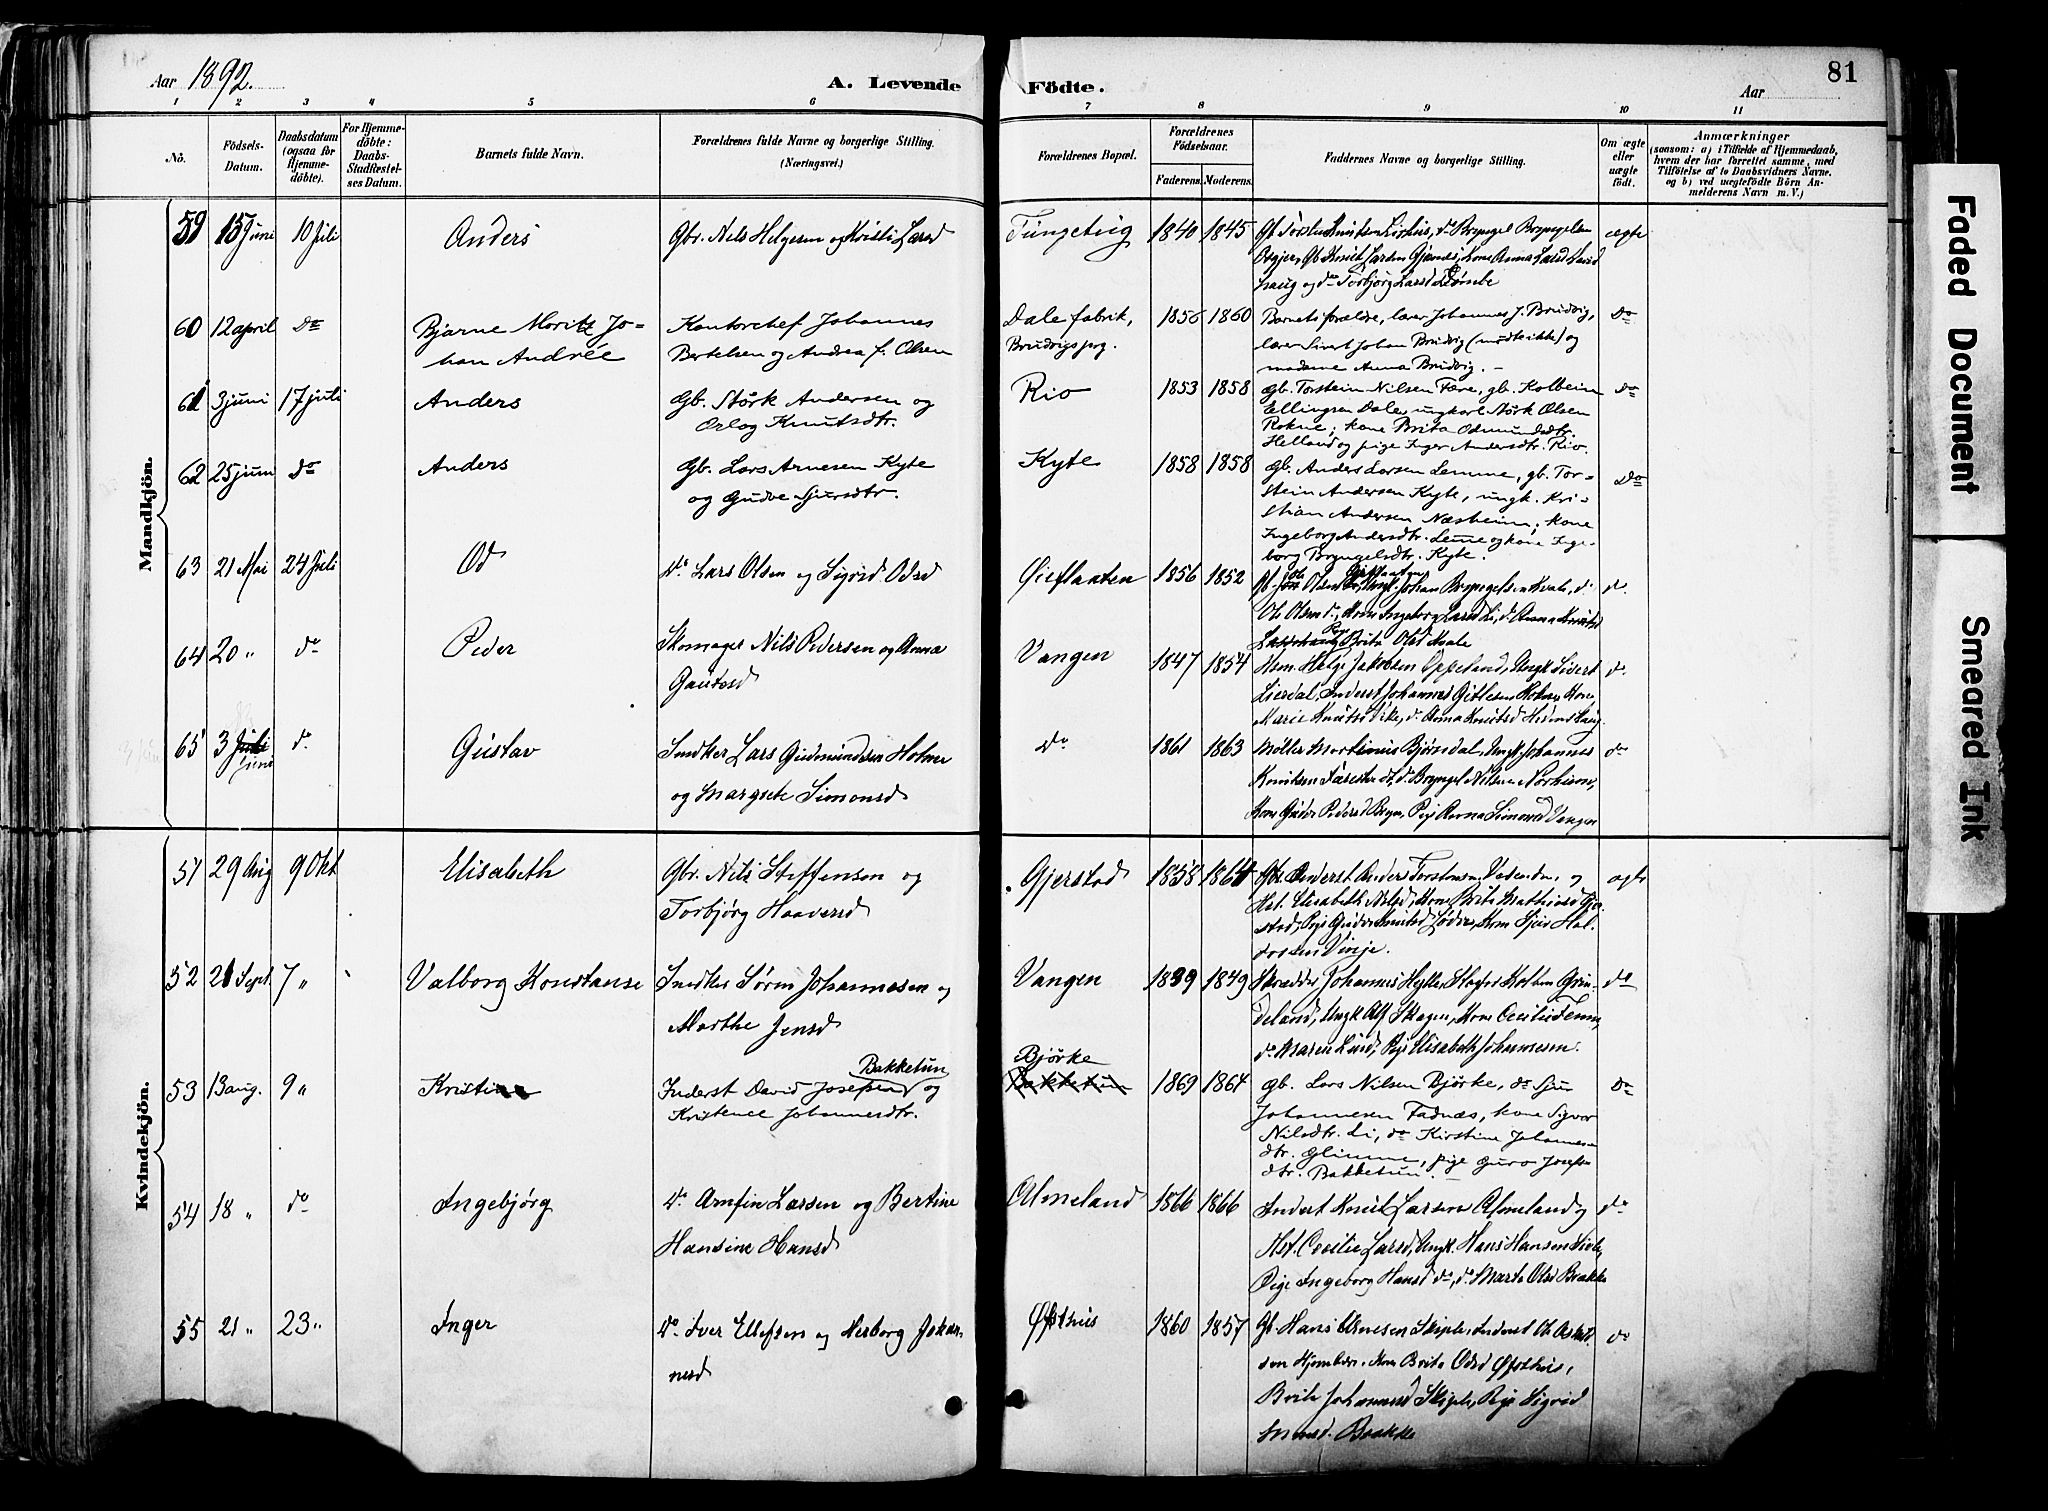 Aar 1892.
A. Levende Födte.
Aar
81
1 2 3 4 5 6 7 8 9 10 11
No.
Födsels-
Datum.
Daabsdatum
(ogsaa for
Hjemme-
döbte).
For Hjemme-
döbte:
Daabs-
Stadfæstel-
ses Datum.
Barnets fulde Navn.
Forældrenes fulde Navne og borgerlige Stilling.
(Næringsvei.)
Forældrenes Bopæl.
Forældrenes
Födselsaar.
Faderens. Moderens.
Faddernes Navne og borgerlige Stilling.
Om ægte
eller
uægte
født.
Anmærkninger
(saasom: a) i Tilfælde af Hjemmedaab,
hvem der har forrettet samme, med
Tilföielse af to Daabsvidners Navne.
og b) ved uægtefödte Börn An-
melderens Navn m. V.)
Mandkjön.
59 15 Juni 10 Juli Anders Gbr. Nils Helgesen og Kristi Larsd Tungetvig 1840 1845 ægte
haug og do Torbjørg Larsd
60 12 april do Bjarne Moritz Jo-
han Andrée
Kontorchef Johannes
Bertelsen og Andrea f. Olsen
Dale fabrik,
Brudvigs prg.
1856 1860
Barnets forældre, lærer Johannes J. Brudvig,
lærer Sivert Johan Brudvig (mødte ikke) og
madame Anna Brudvig. –
do
61 3 juni 17 juli Anders
Gb. Størk Andersen og
Orlog Knutsdtr.
Rio 1853 1858
gb. Torstein Nilsen Fære, gb. Kolbein
Ellingsen Dale, ungkarl Størk Olsen
Rokne; kone Brita Odmundsdtr.
Helland og pige Inger Andersdtr. Rio.
do
62 25 juni do Anders
Gb. Lars Arnesen Kyte
og Gudve Sjursdtr.
Kyte 1858 1858
gb. Anders Larsen Lemme, gb. Tor-
stein Andersen Kyte, ungk. Kri-
stian Andersen Næsheim; kone
Ingeborg Andersdtr. Lemme og kone Inge-
borg Bryngelsdtr. Kyte.
do
63 21 Mai 24 Juli Od do Lars Olsen og Sigrid Odsd Gieflaaten 1856 1852 d.
Brita Olsd
64 20 " do Peder
Skomager Nils Pedersen og Anna
Gautesd
Vangen 1847 1854
Hsm. Helge Jakobsen Oppeland, Ungk Sivert
Lierdal, Inderst Johannes Gitlesen Kone
Marie Knutsd do Anna Knutsd
d.
65 3 Juli
juni
do Gustav
Snedker Lars Gudmundsen Holme
og Margrete Simonsd
do 1861 1863
Møller Martinus Bjørndal, Ungk. Johannes
Knutsen do Bryngel Nilsen Norheim,
Kone Gudve Pedersd Pige Anna Simonsd Vangen
do
Kvindekjön.
51 29 Aug 9 Okt Elisabeth
Gbr. Nils Steffensen og
Torbjörg Haaversd
Gjerstad 1858 1864
Hst. Elisabeth Nilsd, Kone Brita Mathiasd Gjer-
stad, Pige Gudve Knutsd Kone Sjur Hal-
dorsen Vinje.
ægte
52 21 Sept. 7 " Valborg Konstanse
Snedker Sørin Johannesen og
Marthe Jensd
Vangen 1839 1849
Skrædder Johannes Slagter Kolbein Grin-
deland, Ungk Alf Skagen, Kone Cecilie
do Maren Lund, Pige Elisabeth Johannesen.
do
53 13 aug. 9 " Kristine
Bakketun
Inderst David Josefsen og
Kristence Johannesdtr.
Bjørke
Bakketun
1869 1864
gb. Lars Nilsen Bjørke, do Sjur
Johannesen Fadnæs, kone Sigvor
Nilsdtr. Li, do Kirstine Johannes-
dtr. Glimme, pige Guro Josefs-
dtr. Bakketun. –
do
54 18 " do Ingebjørg
do Arnfin Larsen og Bertine
Hansine Hansd
Almeland 1866 1866
Inderst Knut Larsen Almeland og
Hst. Cecilie Larsd, Ungk. Hans Hansen
Pige Ingeborg Hansd do, do Marta Olsd Brakke
do
55 21 " 23 " Inger
do Iver Ellefsen og Herborg Johan-
nesd
Øfsthus 1860 1857
Gb. Hans Arnesen Skiple, Inderst
sen Kone Brita Odsd Øfsthus,
Brita Johannesd Skiple, Pige Sigrid
Brakke
do
Faded Document
Smeared Ink